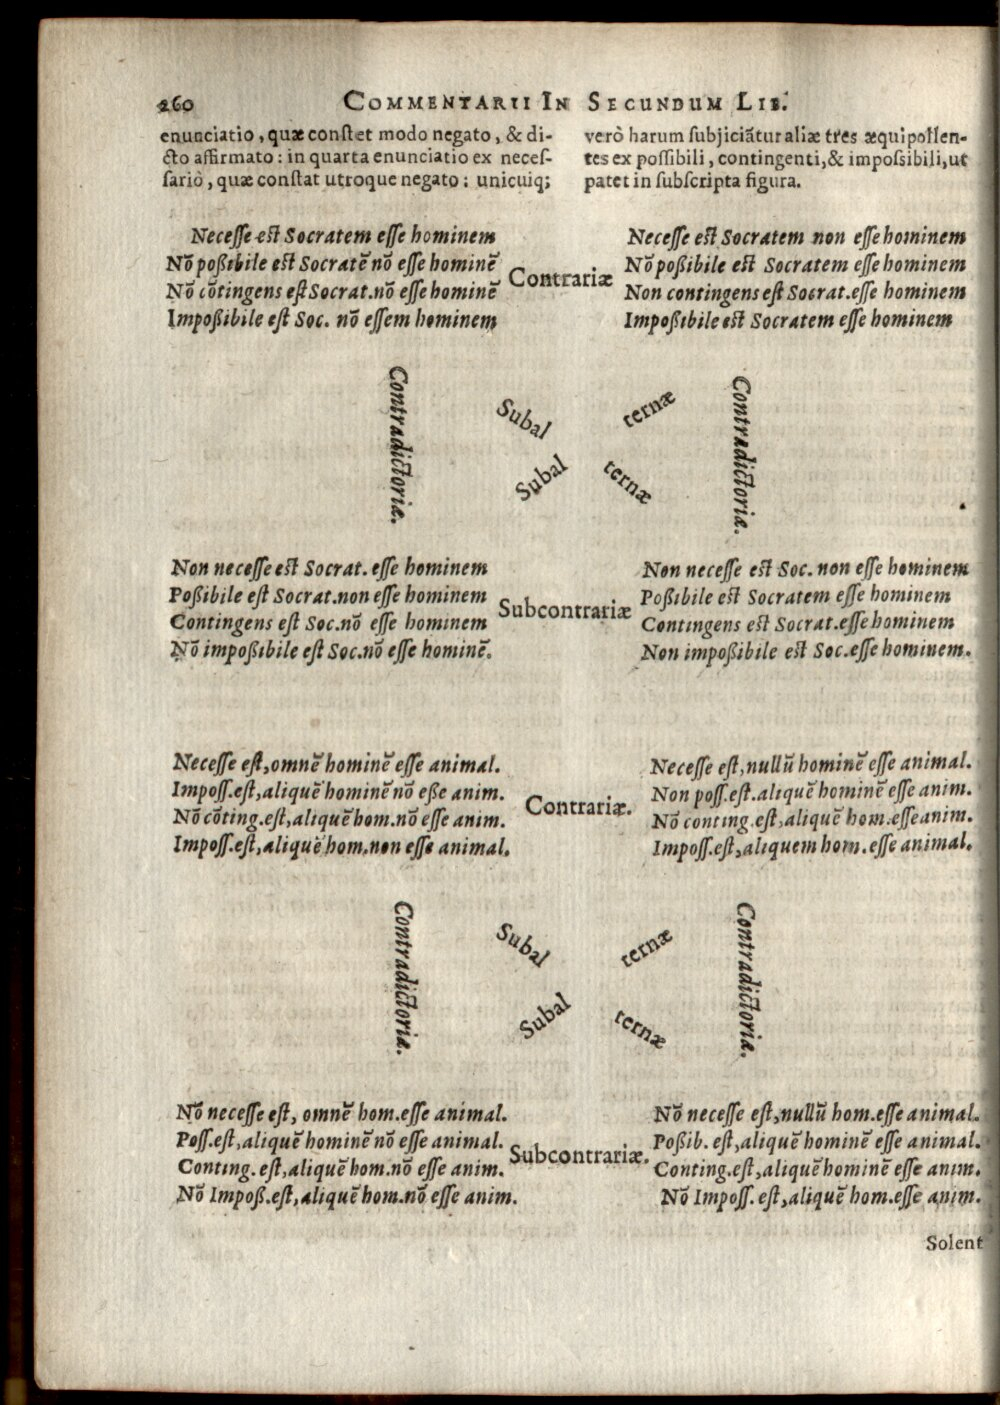 260 COMMENTARII IN SECUNDUM LIB.
enunciatio, quæ constet modo negato, & di-
cto affirmato: in quarta enunciatio ex neces-
sariò, quæ constat utroque negato: unicuiq;
verò harum subjiciãtur aliæ tres æquipollen-
tes ex possibili, contingenti, & impossibili, ut
patet in subscripta figura.
Necesse est Socratem esse hominem
Nõ possibile est Socratẽ nõ esse hominẽ
Nõ cõtingens est Socrat. nõ esse hominẽ
Impossibile est Soc. nõ essem hominem
Contrariæ
Necesse est Socratem non esse hominem
Nõ possibile est Socratem esse hominem
Non contingens est Socrat. esse hominem
Impossibile est Socratem esse hominem
Contradictoriæ.
Subal ternæ
Subal ternæ
Contradictoriæ.
Non necesse est Socrat. esse hominem
Possibile est Socrat. non esse hominem
Contingens est Soc. nõ esse hominem
Nõ impossibile est Soc. nõ esse hominẽ.
Subcontrariæ
Non necesse est Soc. non esse hominem
Possibile est Socratem esse hominem
Contingens est Socrat. esse hominem
Non impossibile est Soc. esse hominem.
Necesse est, omnẽ hominẽ esse animal.
Imposs. est, aliquẽ hominẽ nõ esse anim.
Nõ cõting. est, aliquẽ hom. nõ esse anim.
Imposs. est, aliquẽ hom. non esse animal.
Contrariæ.
Necesse est, nullũ hominẽ esse animal.
Non poss. est. aliquẽ hominẽ esse anim.
Nõ conting. est, aliquẽ hom. esse anim.
Imposs. est, aliquem hom. esse animal.
Contradictoriæ.
Subal ternæ
Subal ternæ
Contradictoriæ.
Nõ necesse est, omnẽ hom. esse animal.
Poss. est, aliquẽ hominẽ nõ esse animal.
Conting. est, aliquẽ hom. nõ esse anim.
Nõ Imposs. est, aliquẽ hom. nõ esse anim.
Subcontrariæ.
Nõ necesse est, nullũ hom. esse animal.
Possib. est, aliquẽ hominẽ esse animal.
Conting. est, aliquẽ hominẽ esse anim.
Nõ Imposs. est, aliquẽ hom. esse anim.
Solent